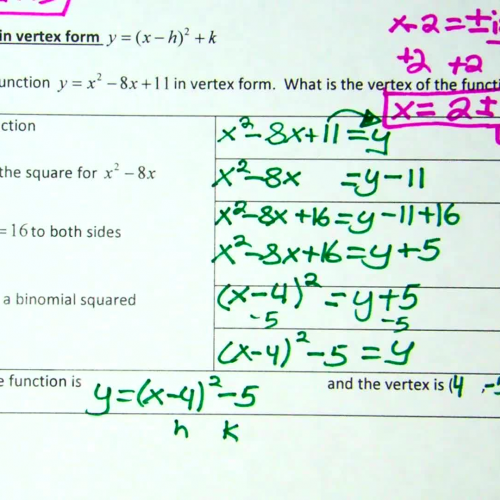 x-2=±i
in vertex form y = (x − h)² + k
+2 +2
unction y = x² − 8x + 11 in vertex form. What is the vertex of the functi
x= 2±
ction
x²-8x+11=y
the square for x² − 8x
x²-8x =y-11
x²-8x+16=y-11+16
= 16 to both sides
x²-8x+16=y+5
a binomial squared
(x-4)²=y+5
-5 -5
(x-4)²-5=y
e function is y=(x-4)²-5 and the vertex is (4 ,-5
h k